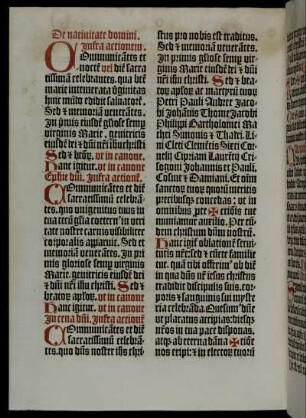 De natiuitate domini.
Infra actionem.
Communicātes et
noctē vel diē sacra
tissimā celebrantes. qua btē
marie intemerata v̄ginitas
huic mūdo edidit saluatorē.
Sed & memoriā venerātes.
In primis gl̄iose semp̄ virginis
Marie. genitricis
eiusdē dei & dn̄i nr̄i ihū christi
Sed & beator̄. vt in canone.
Hanc igitur. vt in canone
Ephie dn̄i. Infra actionē.
Communicātes et diē
sacratissimā celebrā-
tes. quo vnigenitus tuus in
tua tecū gl̄ia coetern⁹ in veri
tate nostre carnis visibiliter
corporalis apparuit. Sed et
memoriā venerātes. In pri
mis gloriose semp̄ virginis
Marie. genitricis eiusdē dei
& dn̄i nr̄i ihū christi. Sed &
beator̄ ap̄lor̄. vt in canone
Hanc igitur. vt in canone
In cena dn̄i. Infra actionē
Communicātes et diē
sacratissimū celebrā-
tes. quo dn̄s noster ih̄s chri
stus pro nobis est traditus.
Sed & memoriā venerātes.
In primis gl̄iose semp̄ virgi
nis Marie. genitricis eiusdē dei & dn̄i
nr̄i ihū christi. Sed & bea-
tor̄ ap̄lor̄ ac martyrū tuor̄
Petri Pauli Andree Jaco
bi Johānis Thome Jacobi
Philippi Bartholomei Ma
thei Simonis & Thadei. Li
ni Cleti Clemētis Sixti Cor
nelij Cipriani Laurētij Cri
sogoni Johannis et Pauli.
Cosme & Damiani. Et oīm
sanctor̄ tuor̄ quor̄ meritis
precibusq̄ concedas: vt in
omnibus pre✠ctiōis tue
muniamur auxilio. Per eū
dem christum dn̄m nostrū.
Hanc igit̄ oblationē serui
tutis nr̄e: sed & cūcte familie
tue. quā tibi offerim⁹ ob diē
in qua dn̄s nr̄ iesus christus
tradidit discipulis suis. cor-
poris & sanguinis sui myste
ria celebrāda. Quesum⁹ dn̄e
vt placatus accipias: diesq̄
nr̄os in tua pace disponas.
atq̄ ab eterna dāna✠tiōe
nos eripi: & in elector̄ tuor̄